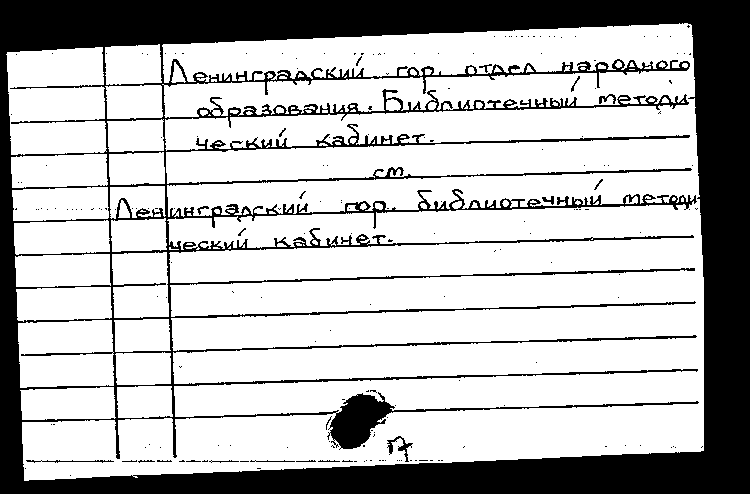 Ленинградский гор. отдел народного
образования. Библиотечный методи-
ческий кабинет.
см.
Ленинградский гор. библиотечный методи-
ческий кабинет.